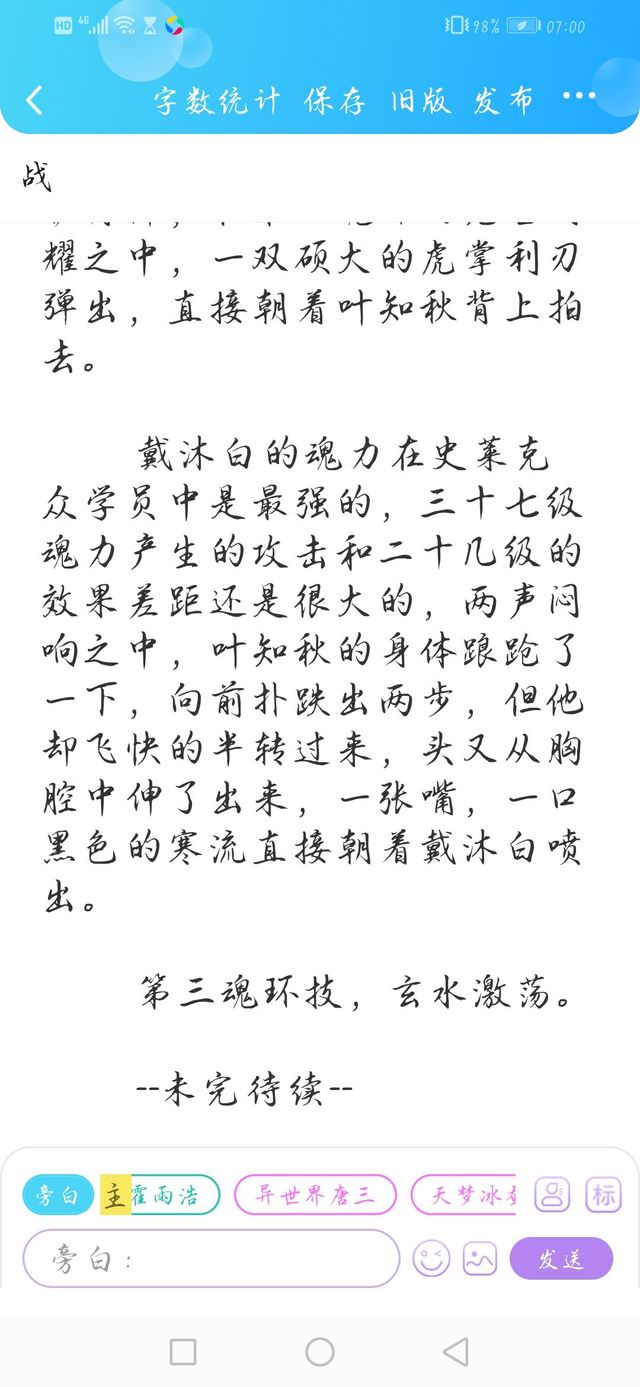 HD 4G 98% 07:00
字数统计 保存 旧版 发布 •••
战
耀之中，一双硕大的虎掌利刃
弹出，直接朝着叶知秋背上拍
去。
戴沐白的魂力在史莱克
众学员中是最强的，三十七级
魂力产生的攻击和二十几级的
效果差距还是很大的，两声闷
响之中，叶知秋的身体踉跄了
一下，向前扑跌出两步，但他
却飞快的半转过来，头又从胸
腔中伸了出来，一张嘴，一口
黑色的寒流直接朝着戴沐白喷
出。
第三魂环技，玄水激荡。
--未完待续--
旁白 主 霍雨浩 异世界唐三 天梦冰 标
旁白： 发送